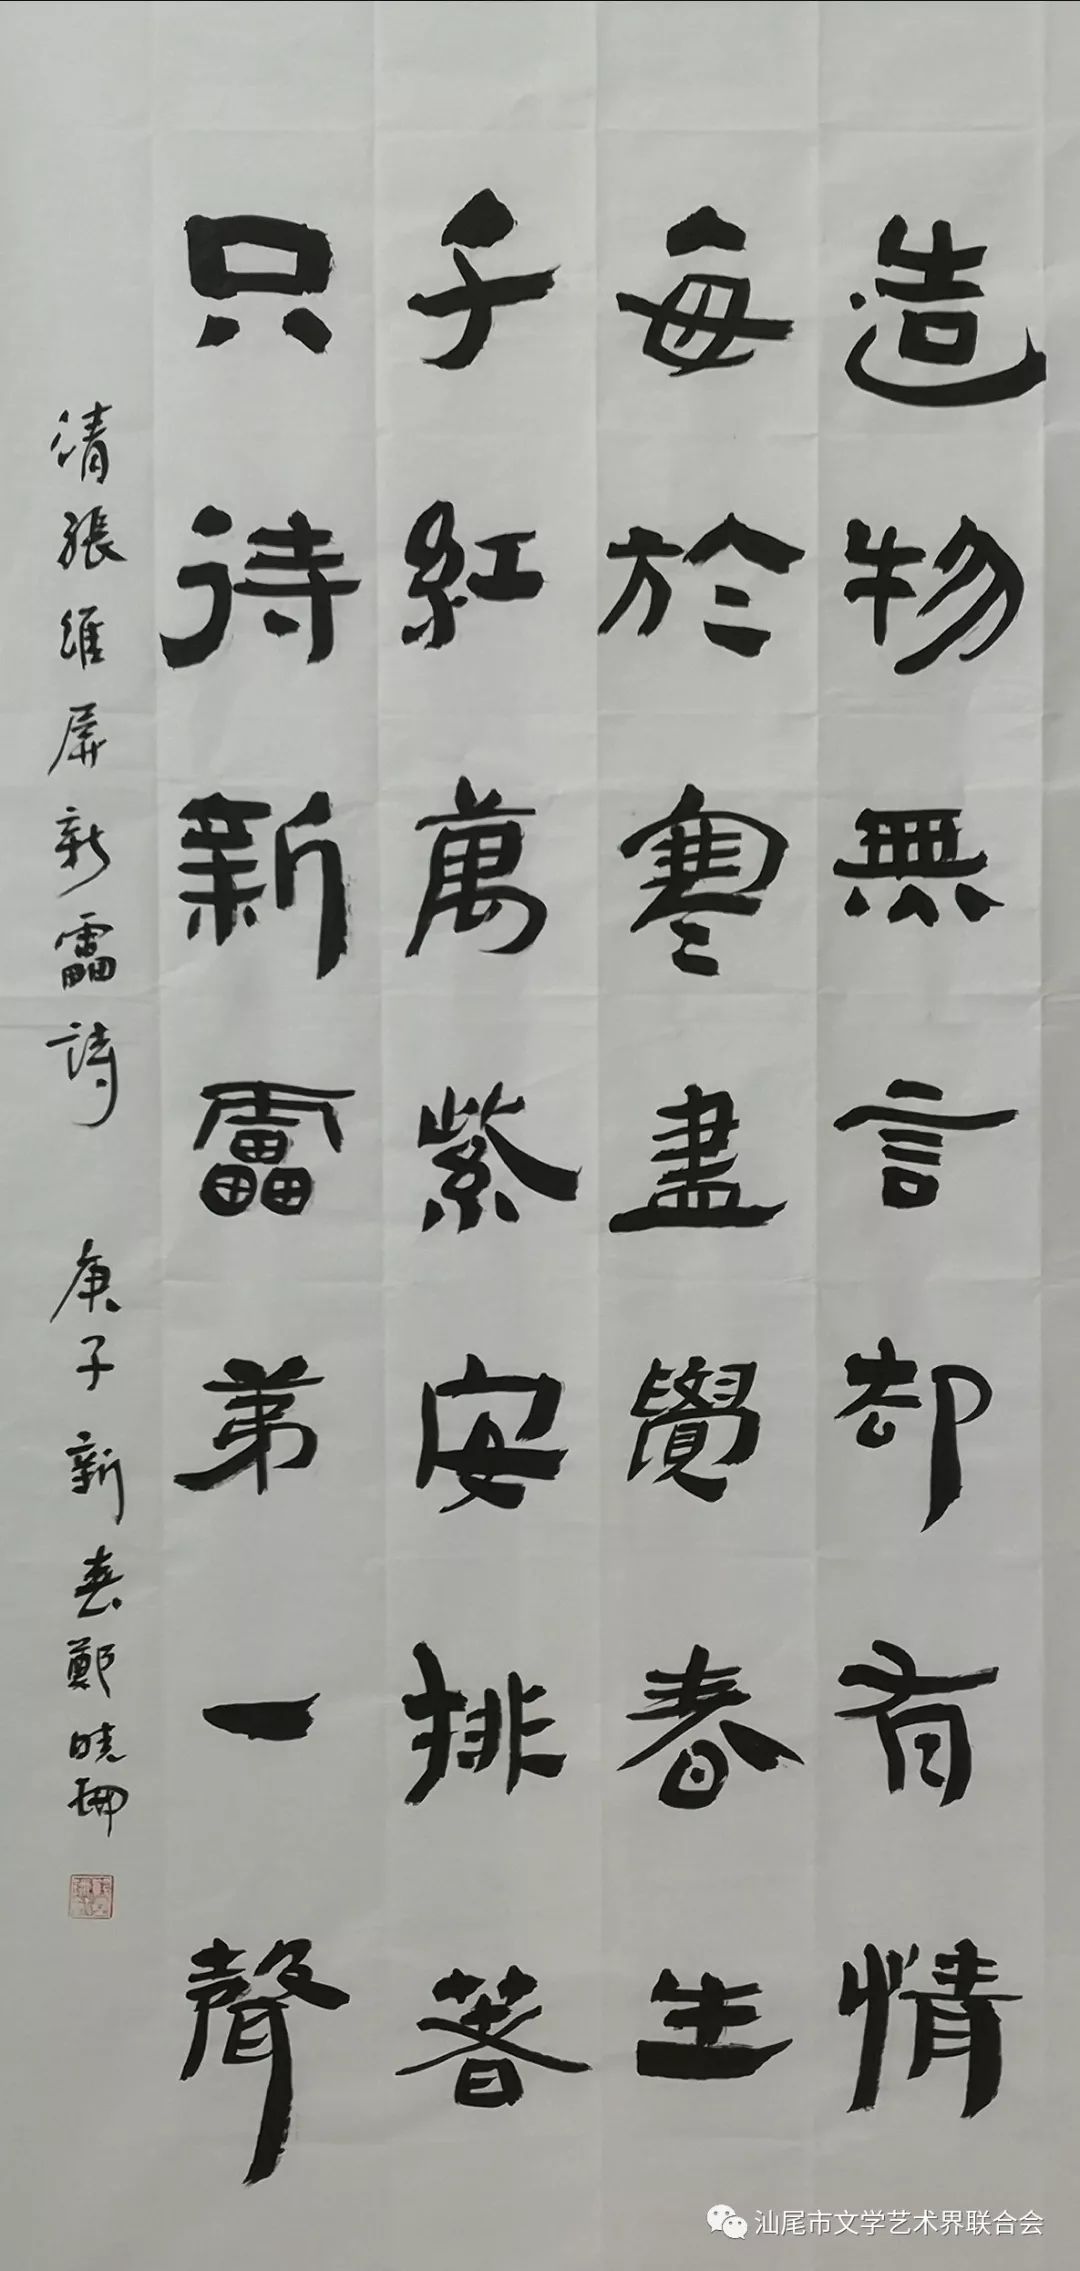 造物無言却有情
每於寒盡覺春生
千紅萬紫安排著
只待新靁弟一聲
清張維屏新靁詩 庚子新春鄭曉珊
汕尾市文学艺术界联合会